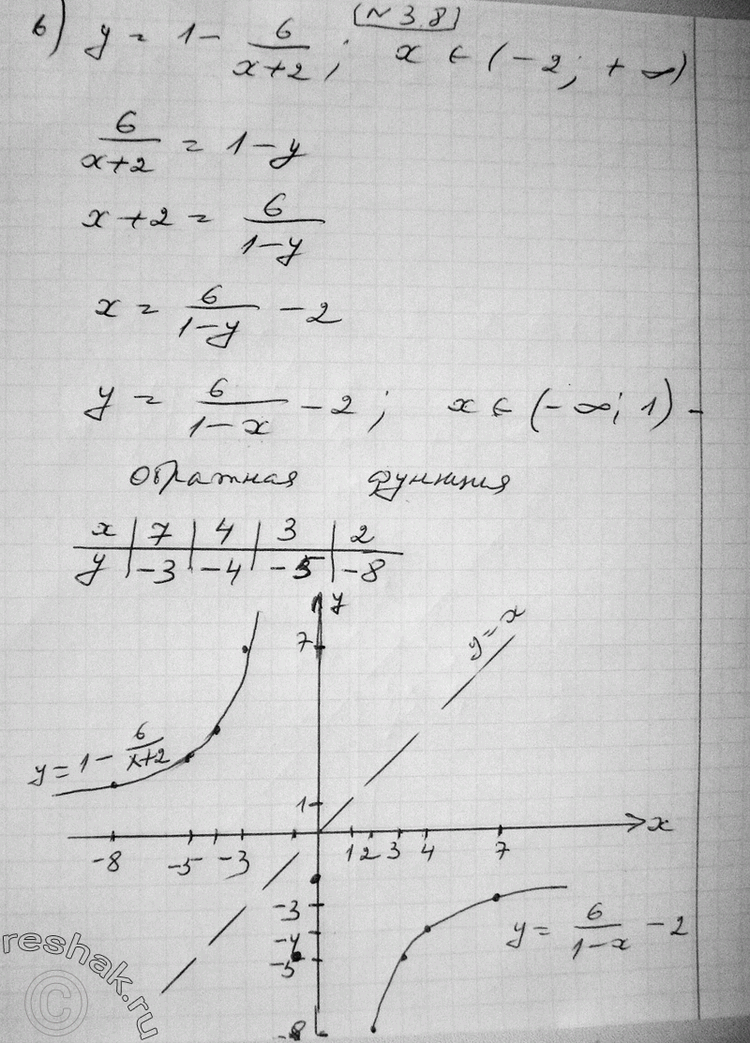 [N 3.8]
б) y = 1 - 6/(x+2); x ∈ (-2; +∞)
6/(x+2) = 1-y
x+2 = 6/(1-y)
x = 6/(1-y) - 2
y = 6/(1-x) - 2; x ∈ (-∞; 1) -
обратная функция
x | 7 | 4 | 3 | 2
y | -3 | -4 | -5 | -8
y
7
y = x
y = 1 - 6/(x+2)
1
x
-8 -5 -3 1 2 3 4 7
-3
-4
-5
-8
y = 6/(1-x) - 2
reshak.ru
©